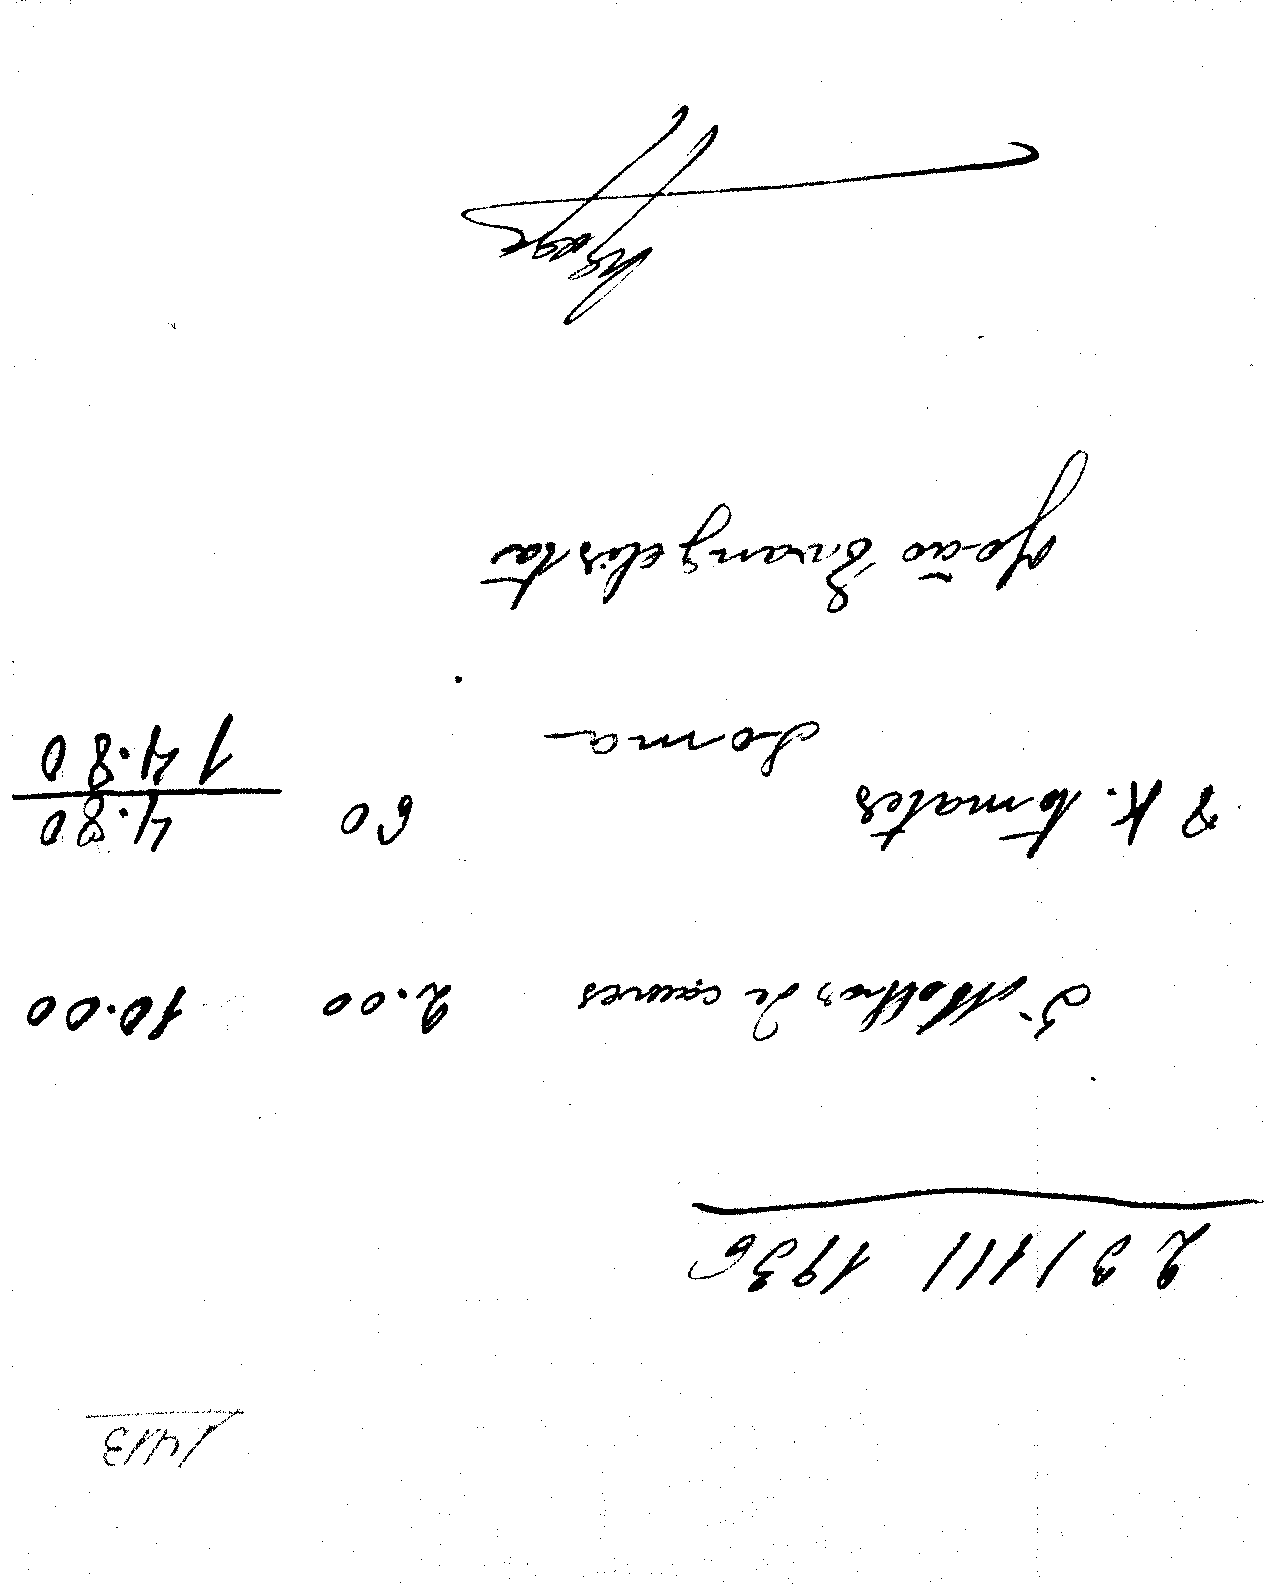 1413
23/III 1936
5 Molhos de couves 2.00 10.00
8 K. tomates 60 4.80
Soma 14.80
João Evangelista